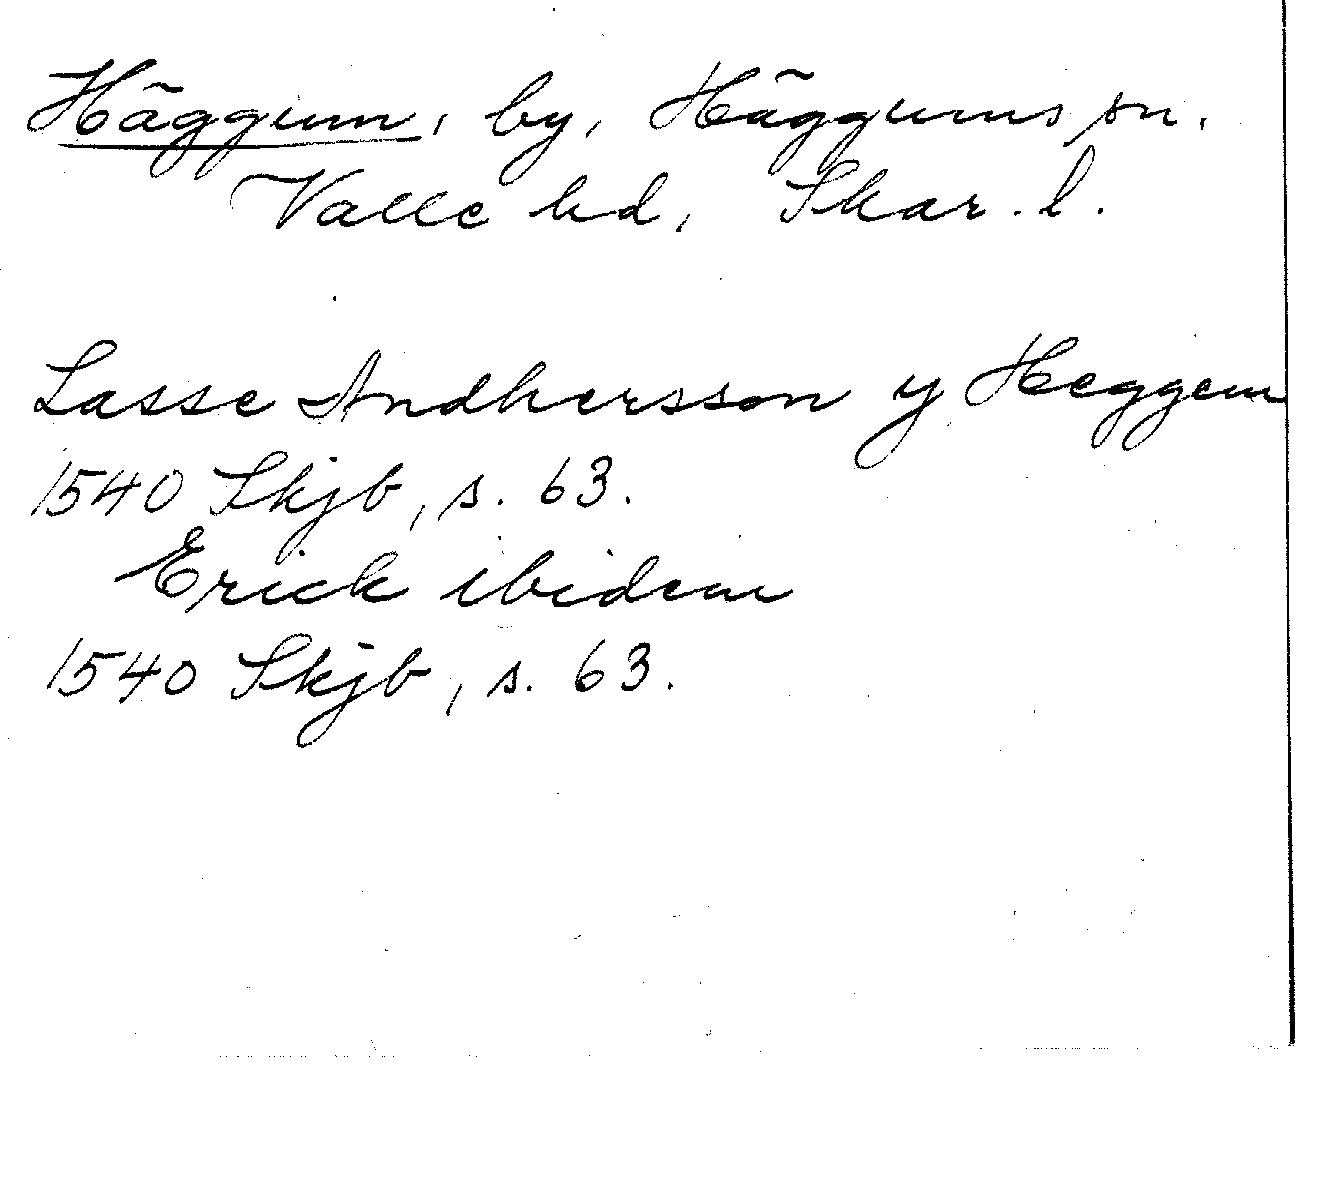 Häggum, by, Häggums sn.
Valle hd, Skar. l.
Lasse Andhersson y Heggem
1540 Skjb, s. 63.
Erick ibidem
1540 Skjb, s. 63.